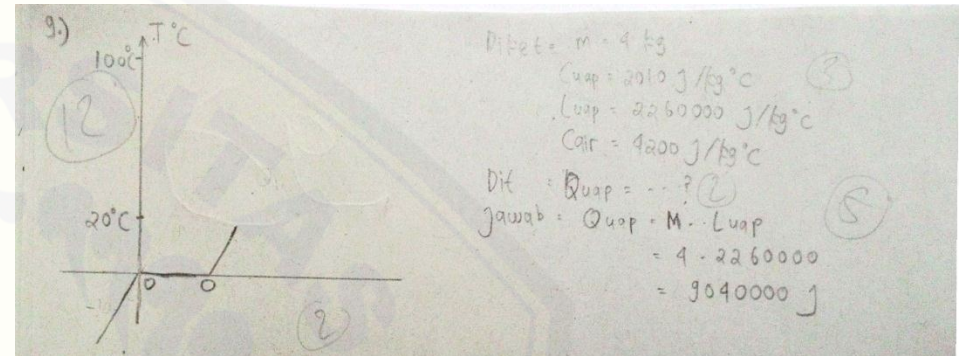 9.)
T°C
100°C
12
20°C
0 0
2
Diket = m = 4 kg
Cuap = 2010 J/kg°C
3
Luap = 2260000 J/kg°C
Cair = 4200 J/kg°C
Dit = Quap = ...? 2
5
Jawab = Quap = M . Luap
= 4 . 2260000
= 9040000 J